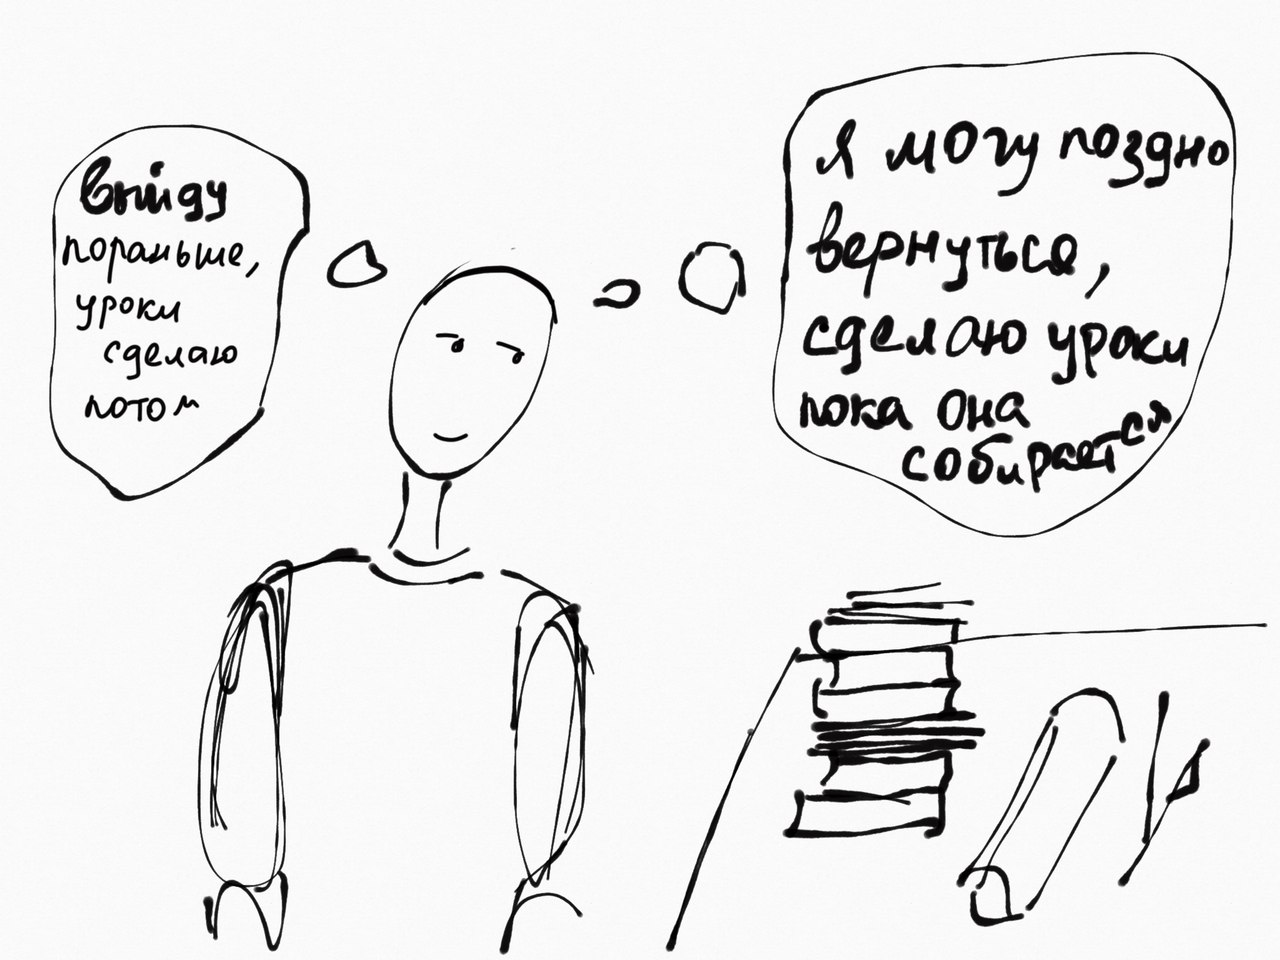 выйду
пораньше,
уроки
сделаю
потом
Я могу поздно
вернуться,
сделаю уроки
пока она
собирается